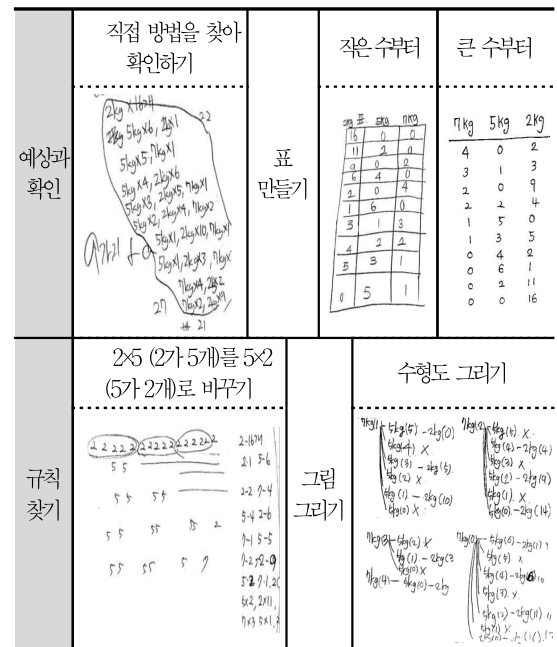 직접 방법을 찾아
확인하기
작은 수부터
큰 수부터
예상과
확인
2kg×16개
5kg×6, 2kg×1
5kg×5, 7kg×1
5kg×4, 2kg×6
5kg×3, 2kg×5, 7kg×1
5kg×2, 2kg×4, 7kg×2
5kg×1, 2kg×10, 7kg×1
5kg×1, 2kg×3, 7kg×
7kg×4, 2kg×2
7kg×2, 2kg×9
22
27
21
표
만들기
2kg 표 5kg 7kg
16 0 0
11 2 0
9 0 2
6 4 0
2 0 4
1 6 0
3 1 3
4 2 2
5 3 1
0 5 1
7kg 5kg 2kg
4 0 2
3 1 3
2 0 9
2 2 4
1 5 0
1 3 5
0 4 2
0 6 1
0 2 11
0 0 16
규칙
찾기
2×5 (2가 5개)를 5×2
(5가 2개)로 바꾸기
2 2 2 2 2 2 2 2 2 2 2 2 2 2 2 2
5 5
5 5 5 5
5 5 5 5 5 5 2
5 5 5 5 5 7
2-16개
2-1 5-6
2-2 7-4
5-4 2-6
7-1 5-5
5×2, 2×11,
그림
그리기
수형도 그리기
7kg(1) 5kg(5) - 2kg(0)
5kg(4) X
5kg(3) - 2kg(5)
5kg(2) X
5kg(1) - 2kg(10)
5kg(0) X
7kg(2) 5kg(5) X
5kg(4) - 2kg(4)
5kg(3) X
5kg(2) - 2kg(9)
5kg(1) X
5kg(0) - 2kg(14)
7kg(3) 5kg(2) X
5kg(1) - 2kg(3
5kg(0) X
7kg(4) - 5kg(0) - 2kg
7kg(0) 5kg(6) - 2kg(1)
5kg(5) X
5kg(4) - 2kg(6)
5kg(3) X
5kg(2) - 2kg(11)
5kg(1) X